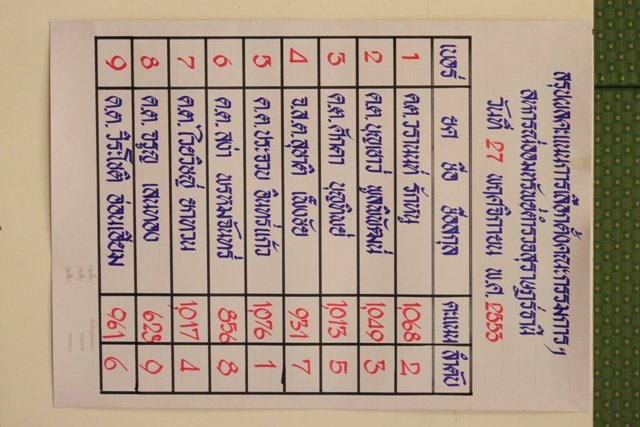 สรุปผลคะแนนการเลือกตั้งคณะกรรมการฯ
สหกรณ์ออมทรัพย์ตำรวจสุราษฎร์ธานี
วันที่ 27 พฤศจิกายน พ.ศ. 2553
เบอร์ ยศ ชื่อ ชื่อสกุล คะแนน ลำดับ
1 ด.ต. วรานนท์ รักหนู 1,068 2
2 ด.ต. บุญเยาว์ พูลพิพัฒน์ 1,049 3
3 ด.ต. ศักดา บุญทิพย์ 1,013 5
4 จ.ส.ต. สุชาติ เพ็งชัย 931 7
5 ด.ต. ประจวบ อินทร์แก้ว 1,076 1
6 ด.ต. สง่า พรหมจันทร์ 856 8
7 ด.ต. ตาทวน 1,017 4
8 ด.ต. จรูญ เจนทอง 623 9
9 ด.ต. วิระโชติ อ่อนเสียม 961 6